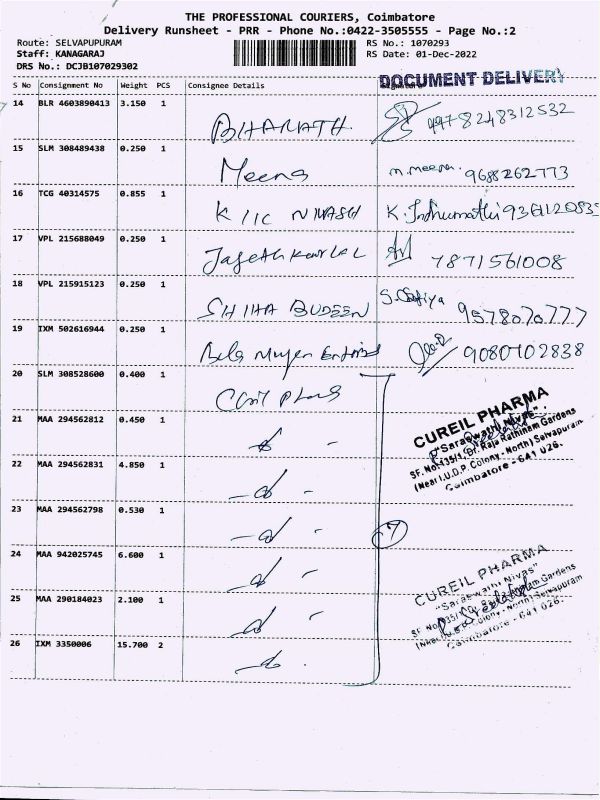 THE PROFESSIONAL COURIERS, Coimbatore
Delivery Runsheet - PRR - Phone No.:0422-3505555 - Page No.:2
Route: SELVAPUPURAM RS No.: 1070293
Staff: KANAGARAJ RS Date: 01-Dec-2022
DRS No.: DCJB107029302
DOCUMENT DELIVERY
S No Consignment No Weight PCS Consignee Details
14 BLR 4603890413 3.150 1 BHARATH 8248312532
15 SLM 308489438 0.250 1 Meena m.meena. 9688262773
16 TCG 40314575 0.855 1 NIVASH K. Indhumathi
17 VPL 215688049 0.250 1 7871561008
18 VPL 215915123 0.250 1 SHIHA BUDEEN 9578070777
19 IXM 502616944 0.250 1 9080702838
20 SLM 308528600 0.400 1
21 MAA 294562812 0.450 1
22 MAA 294562831 4.850 1
23 MAA 294562798 0.530 1
24 MAA 942025745 6.600 1
25 MAA 290184023 2.100 1
26 IXM 3350006 15.700 2
7
CUREIL PHARMA
"Saraswathi Nivas"
SF. No. 435/1, Dr. Raja Rathinam Gardens
(Near I.U.D.P. Colony - North) Selvapuram
Coimbatore - 641 026.
CUREIL PHARMA
"Saraswathi Nivas"
SF. No. 435/1, Dr. Rathinam Gardens
(Near I.U.D.P. Colony - North) Selvapuram
Coimbatore - 641 026.